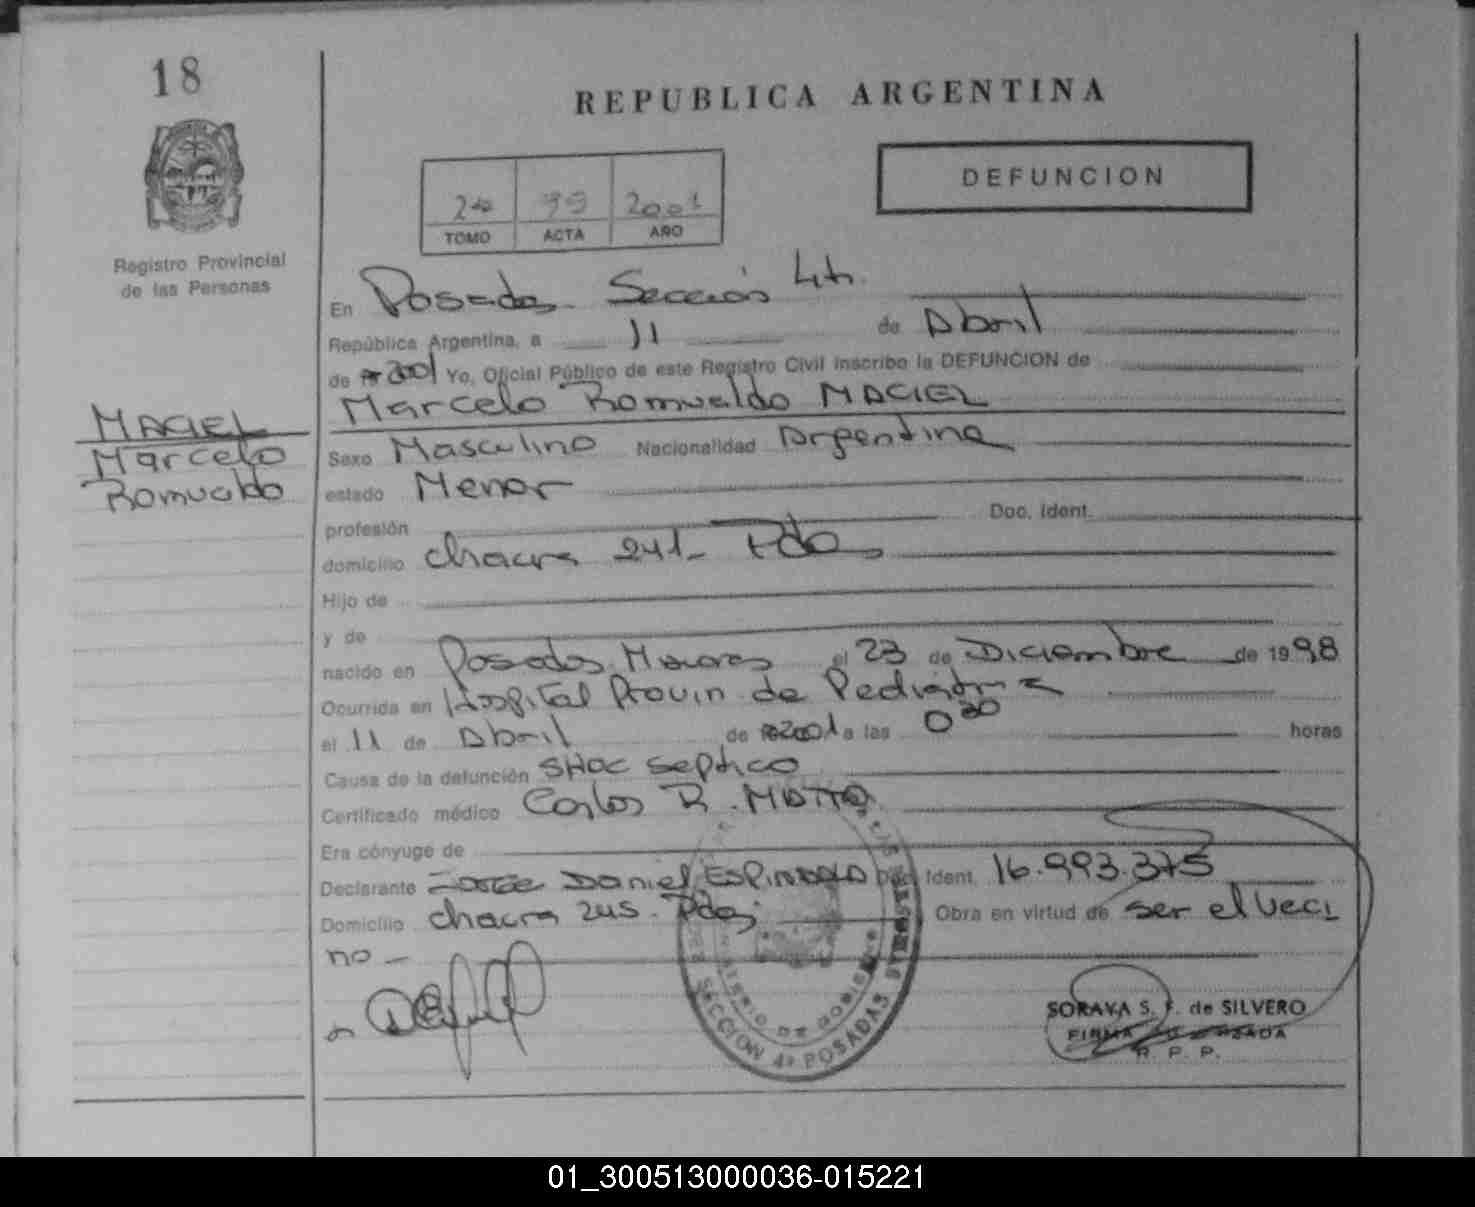 18
REPUBLICA ARGENTINA
DEFUNCION
99 2001
TOMO ACTA AÑO
Registro Provincial
de las Personas
En Posadas Sección 4ta.
República Argentina, a 11 de Abril
de 2001 Yo, Oficial Público de este Registro Civil inscribo la DEFUNCION de
MACIEL
Marcelo
Romualdo
Marcelo Romualdo MACIEL
Sexo Masculino Nacionalidad Argentina
estado Menor
profesión Doc. Ident.
domicilio chacra 241- Pdas
Hijo de
y de
nacido en Posadas Misiones el 23 de Diciembre de 1998
Ocurrida en Hospital Provin. de Pediatria
el 11 de Abril de 2001 a las 0 30 horas
Causa de la defunción SHOC Septico
Certificado médico Carlos R. MOTTA
Era cónyuge de
Declarante Jorge Daniel ESPINDOLA Doc. Ident. 16.993.375
Domicilio chacra 245. Pdas; Obra en virtud de ser el veci
no -
SECCION 4ª POSADAS
MINISTERIO DE GOBIERNO
SORAYA S. F. de SILVERO
FIRMA AUTORIZADA
R. P. P.
01_300513000036-015221